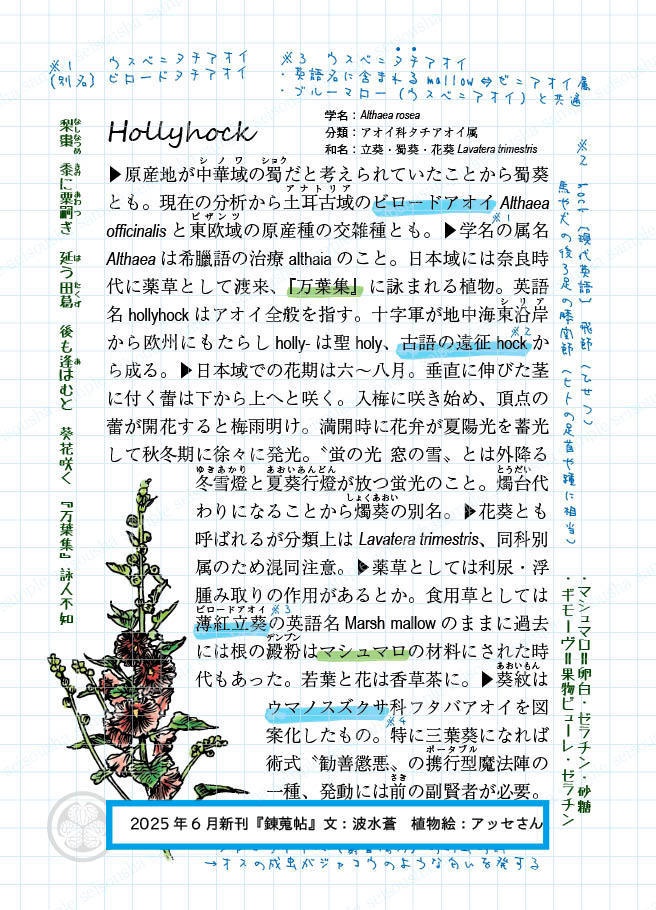 ※1　ウスベニタチアオイ
(別名) ビロードタチアオイ
※3　ウスベニタチアオイ
・英語名に含まれるmallow⇔ゼニアオイ属
・ブルーマロー(ウスベニアオイ)と共通
Hollyhock
学名：Althaea rosea
分類：アオイ科タチアオイ属
和名：立葵・蜀葵・花葵 Lavatera trimestris
▶原産地が中華域の蜀だと考えられていたことから蜀葵
とも。現在の分析から土耳古域のビロードアオイ Althaea
officinalis と東欧域の原産種の交雑種とも。▶学名の属名
Althaea は希臘語の治療 althaia のこと。日本域には奈良時
代に薬草として渡来、『万葉集』に詠まれる植物。英語
名 hollyhock はアオイ全般を指す。十字軍が地中海東沿岸
から欧州にもたらし holly- は聖 holy、古語の遠征 hock か
ら成る。▶日本域での花期は六～八月。垂直に伸びた茎
に付く蕾は下から上へと咲く。入梅に咲き始め、頂点の
蕾が開花すると梅雨明け。満開時に花弁が夏陽光を蓄光
して秋冬期に徐々に発光。〝蛍の光 窓の雪〟とは外降る
冬雪燈と夏葵行燈が放つ蛍光のこと。燭台代
わりになることから燭葵の別名。▶花葵とも
呼ばれるが分類上は Lavatera trimestris、同科別
属のため混同注意。▶薬草としては利尿・浮
腫み取りの作用があるとか。食用草としては
薄紅立葵の英語名 Marsh mallow のままに過去
には根の澱粉はマシュマロの材料にされた時
代もあった。若葉と花は香草茶に。▶葵紋は
ウマノスズクサ科フタバアオイを図
案化したもの。特に三葉葵になれば
術式〝勧善懲悪〟の携行型魔法陣の
一種、発動には前の副賢者が必要。
シノワ
ショク
アナトリア
ビザンツ
※1
シリア
※2
ゆきあかり
あおいあんどん
とうだい
しょくあおい
ビロードアオイ
※3
デンプン
あおいもん
※4
ポータブル
さき
※2　hock (現代英語) 飛節 (ひせつ)
馬や犬の後ろ足の膝関節 (ヒトの足首や踵に相当)
・マシュマロ＝卵白・ゼラチン・砂糖
・ギモーヴ＝果物ピューレ・ゼラチン
梨棗　黍に粟嗣ぎ　延う田葛　後も逢はむと　葵花咲く　『万葉集』詠人不知
なしなつめ　きみ　あわつ　は　たくず　あ
2025年6月新刊『錬蒐帖』文：波水蒼　植物絵：アッセさん
→オスの成虫がジャコウのような匂いを発する